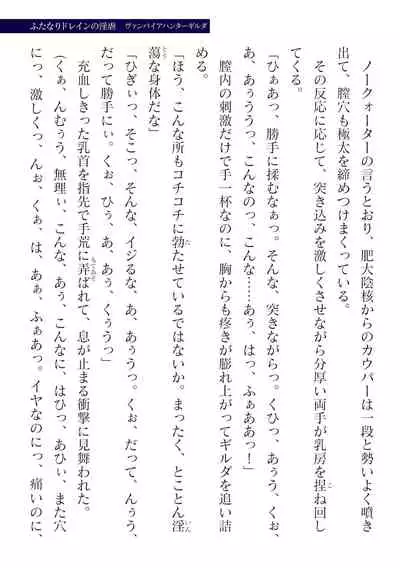 ふたなりドレインの淫虐　ヴァンパイアハンターギルダ
ノークォーターの言うとおり、肥大陰核からのカウパーは一段と勢いよく噴き
出て、膣穴も極太を締めつけまくっている。
その反応に応じて、突き込みを激しくさせながら分厚い両手が乳房を捏ね回し
「ひぁあっ、勝手に揉むなぁっ。そんな、突きながらっ。くひっ、あぅう、くぉ、
あ、あぅううっ、こんなのっ、こんな……あぅ、はっ、ふぁああっ！」
膣内の刺激だけで手一杯なのに、胸からも疼きが膨れ上がってギルダを追い詰
める。
「ほう、こんな所もコチコチに勃たせているではないか。まったく、とことん淫
蕩な身体だな」
「ひぎぃっ、そこっ、そんな、イジるな、あ、あぅうっ。くぉ、だって、んぅう、
だって勝手にぃ。くぉ、ひぅ、あ、あぅ、くぅうっ」
充血しきった乳首を指先で手荒に弄ばれて、息が止まる衝撃に見舞われた。
（くぁ、んむぅう、無理ぃ、こんな、あぅ、こんなに、はひっ、あひぃ、また穴
にっ、激しくっ、んぉ、くぁ、は、あぁ、ふぁあっ。イヤなのにっ、痛いのに、